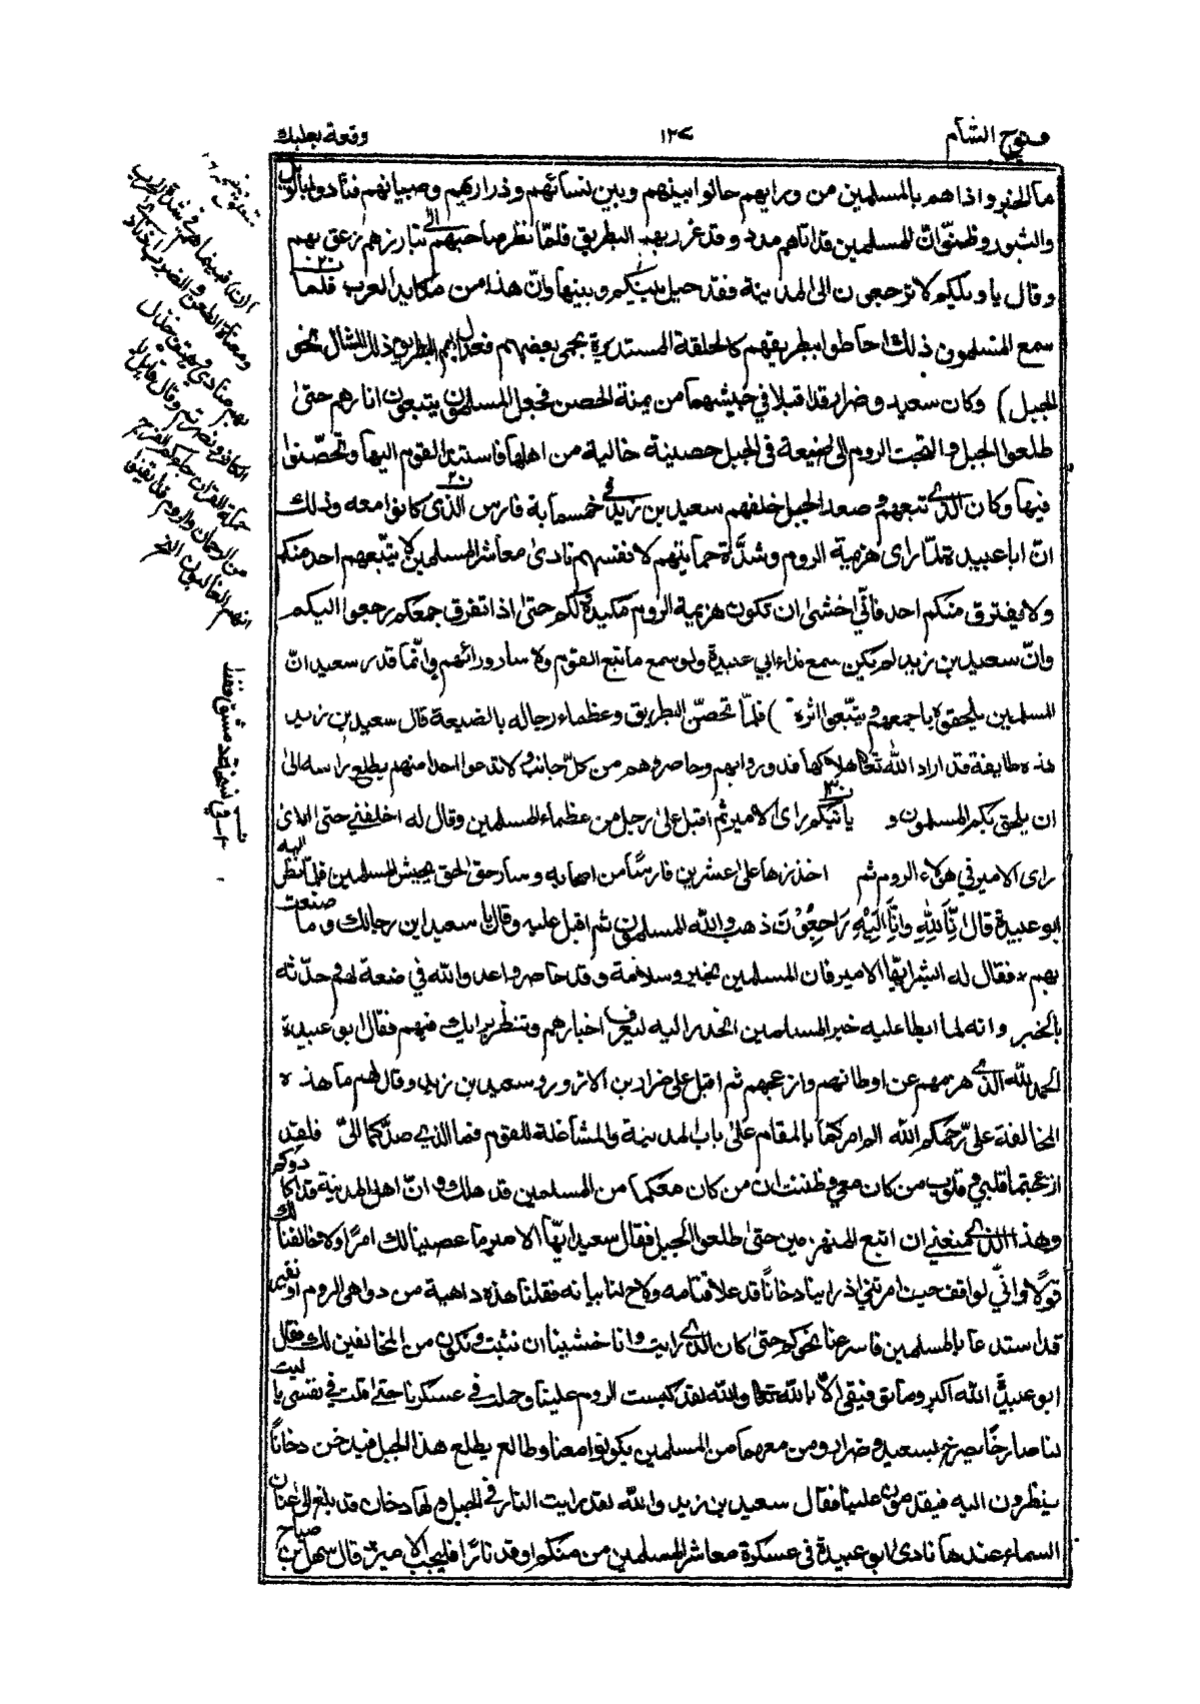 فتوح الشام
١٣٧
وقعة بعلبك
ما الخبر واذا هم بالمسلمين من ورايهم حالوا بينهم وبين نسائهم وذراريهم وصبيانهم فنادوا بالويل
والثبور وظنوا ان المسلمين قد اتاهم مدد وقد غرر بهم البطريق فلما نظر صاحبهم الى تبارزهم زعق بهم
وقال يا ويلكم لا ترجعون الى المدينة وفقد حيل بينكم وبينها وان هذا من مكايد العرب فلما
سمع المسلمون ذلك احاطوا ببطريقهم كالحلقة المستديرة يحمي بعضهم بعضا فعدل بهم البطريق ذلك الشمال نحو
الجبل) وكان سعيد وضرار قد اقبلا في جيشهما من يمنة الحصن فجعل المسلمون يتبعون اثارهم حتى
طلعوا الجبل والتجت الروم الى ضيعة في الجبل حصينة خالية من اهلها فاستتر القوم اليها وتحصنوا
فيها وكان الذي تبعهم وصعد الجبل خلفهم سعيد بن زيد في خمسماية فارس الذي كانوا معه وذلك
ان ابا عبيدة لمّا راى هزيمة الروم وشدّة حمايتهم لانفسهم نادى معاشر المسلمين لا يتّبعهم احد منكم
ولا يفترق منكم احد فانّي اخشى ان تكون هزيمة الروم مكيدة لكم حتى اذا تفرق جمعكم رجعوا اليكم
وانّ سعيد بن زيد لم يكن سمع نداء ابي عبيدة ولو سمع ما تبع القوم ولا سار ورائهم وانّما قدر سعيد انّ
المسلمين يلحقوه باجمعهم ويتّبعوا اثره) فلمّا تحصّن البطريق وعظماء رجاله بالضيعة قال سعيد بن زيد
هذه طايفة قد اراد الله تعالى هلاكها فدوروا بهم وحاصروهم من كلّ جانب ولا تدعوا احدا منهم يطلع راسه الى
ان يلحق بكم المسلمون و ياتيكم راى الامير ثم اقبل على رجل من عظماء المسلمين وقال له اخلفني حتى ارى
راى الامير في هؤلاء الروم ثم اخذ زهاء على عشرين فارسًا من اصحابه وسار حتى لحق بجيش المسلمين فلما نظر اليه
ابو عبيدة قال انّا لله وانّا اليه راجعون ذهب والله المسلمون ثم اقبل عليه وقال يا سعيد اين رجالك وما صنعت
بهم فقال له ابشر ايّها الامير فان المسلمين بخير وسلامة وقد حاصروا عدو الله في ضيعة لهم وحدّثه
بالخبر وانه لما ابطا عليه خبر المسلمين انحدر اليه ليعرف اخبارهم وتنظر برايك فيهم فقال ابو عبيدة
الحمد لله الذي هزمهم عن اوطانهم وازعجهم ثم اقبل على ضرار بن الازور وسعيد بن زيد وقال لهم ما هذه
المخالفة على رحمكم الله الم امركما بالمقام على باب المدينة والمشاغلة للقوم فما الذي صدّكما الىّ فلقد
ازعجتما قلبي وقلوب من كان معي وظننت ان من كان معكما من المسلمين قد هلك وانّ اهل المدينة قد كادوكم
وهذا الذي منعني ان اتبع المنهزمين حتى طلعوا الجبل فقال سعيد ايّها الامير ما عصينا لك امرًا ولا خالفنا لك
قولا وانّي لواقف حيث امرتني اذ راينا دخانًا قد علا قتامه ولاح لنا بيانه فقلنا هذه داهية من دواهي الروم او نفير
قد استدعا بالمسلمين فاسرعنا نحوكم حتى كان الذي رايت وانا خشينا ان نثبت ونكون من المخالفين لك فقال
ابو عبيدة الله اكبر وما توفيقي الّا بالله تعالى والله لقد كبست الروم علينا وحملت في عسكرنا حتى قلت في نفسي يا ليت
لنا صارخًا يصرخ بسعيد وضرار ومن معهما من المسلمين يكونوا معنا وطالع يطلع هذا الجبل فيدخن دخانًا
ينظرون اليه فيقدمون علينا فقال سعيد بن زيد والله لقد رايت النار في الجبل ولها دخان قد بلغ الى عنان
السماء عندها نادى ابو عبيدة في عسكره معاشر المسلمين من منكم اوقد نارًا فليجب الامير قال سهل بن صباح